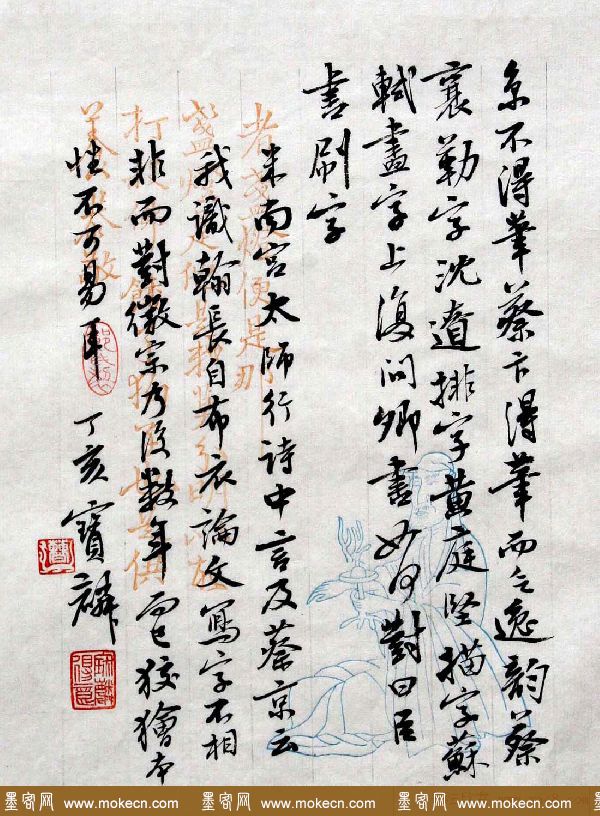 京不得筆蔡卞得筆而乏逸韵蔡
襄勒字沈遼排字黄庭堅描字蘇
軾畫字上復问卿書如何對曰臣
書刷字
米南宫太師行诗中言及蔡京云
我識翰長自布衣論文寫字不相
非而對徽宗乃後数年而已狡獪本
性不可易耳
丁亥 寶麟
者 便是
墨客网 www.mokecn.com 墨客网 www.mokecn.com 墨客网 www.mokecn.com